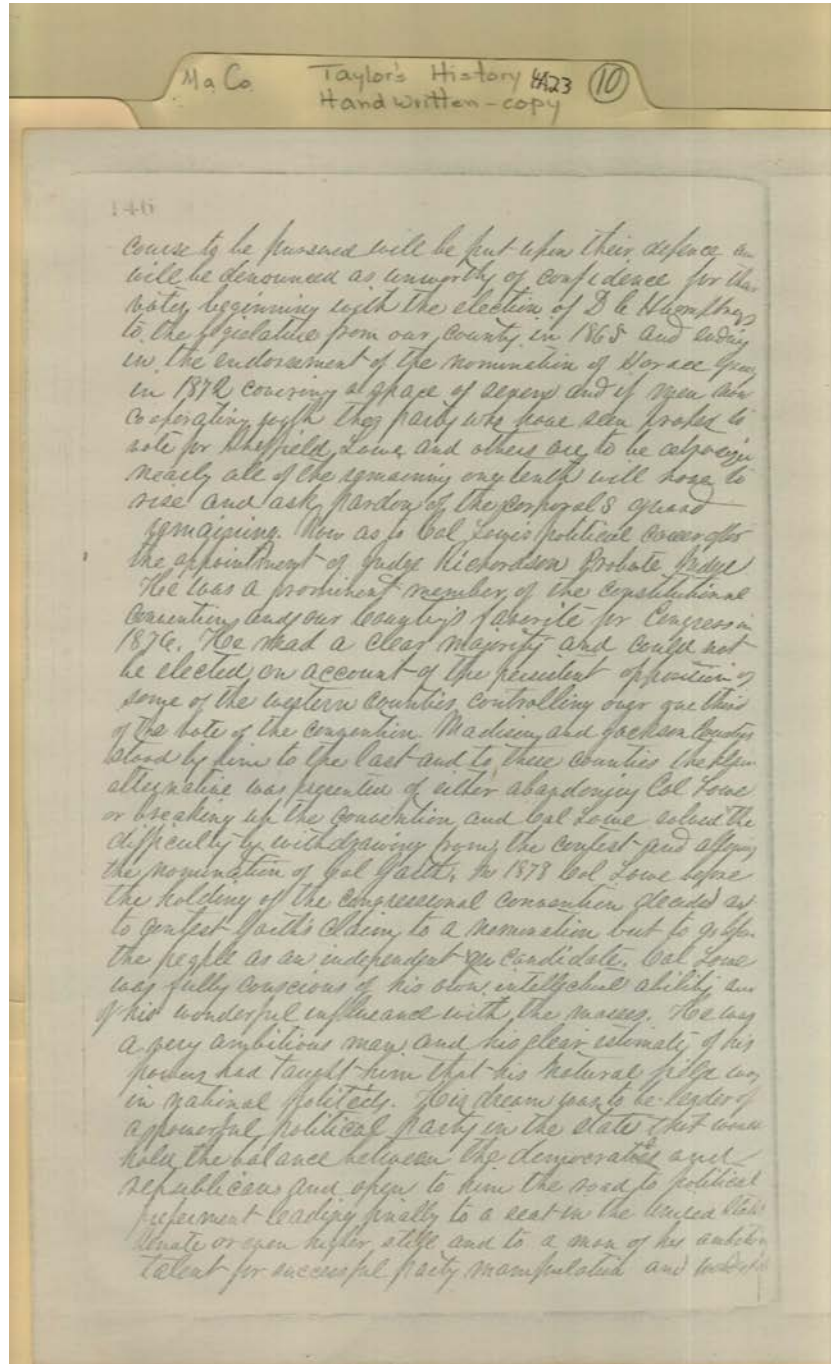 Ma Co Taylor's History 4A23 10
Handwritten - copy
146
course to be pursued will be put upon their defence an
will be denounced as unworthy of confidence for their
votes, beginning with the election of D C Humphreys
to the legislature from our county in 1868 and ending
in the endorsement of the nomination of Horace
in 1872 covering a space of seven and if men now
cooperating with the party who have seen proper to
vote for Sheffield, Lowe and others are to be
nearly all of the remaining one tenth will have to
rise and ask pardon of the corporals guard
remaining. Now as to Col Lowes political career after
the appointment of Judge Richardson Probate Judge
He was a prominent member of the constitutional
Convention and our County's favorite for Congress in
1876. He had a clear majority and could not
be elected on account of the persistent opposition of
some of the western counties, controlling over one third
of the vote of the convention. Madison and Jackson Counties
stood by him to the last and to these counties the
alternative was presented of either abandoning Col Lowe
or breaking up the convention and Col Lowe solved the
difficulty by withdrawing from the contest and
the nomination of Col Garth. In 1878 Col Lowe before
the holding of the congressional convention decided not
to contest Garth's claim to a nomination but to go before
the people as an independent candidate. Col Lowe
was fully conscious of his own intellectual ability an
of his wonderful influance with the masses. He was
a very ambitious man and his clear estimate of his
powers had taught him that his natural field was
in national politics. His dream was to be leader of
a powerful political party in the state that would
hold the balance between the democrats and
republicans and open to him the road to political
preferment leading finally to a seat in the United States
Senate or even higher still and to a man of his ambition
talent for successful party manipulation and